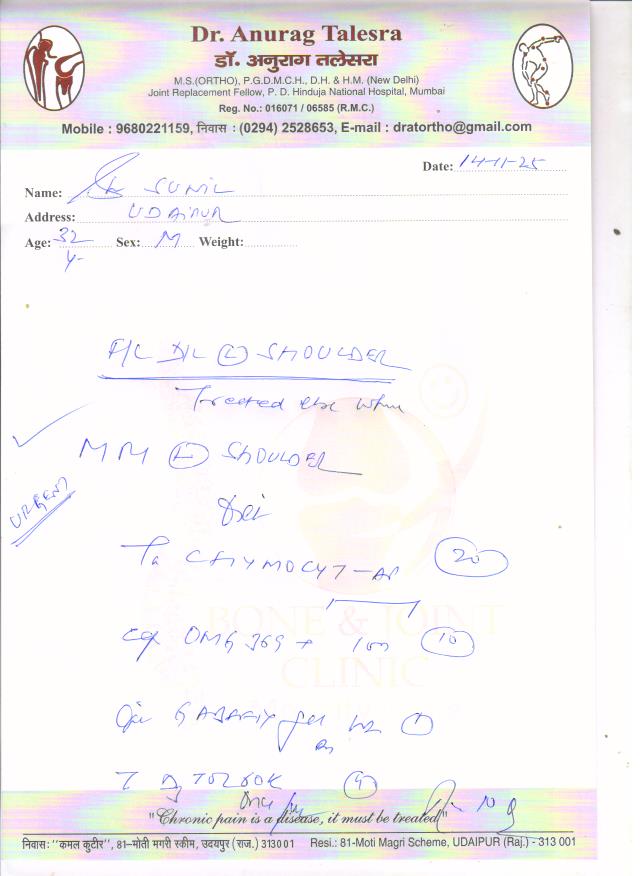 Dr. Anurag Talesra
डॉ. अनुराग तलेसरा
M.S.(ORTHO), P.G.D.M.C.H., D.H. & H.M. (New Delhi)
Joint Replacement Fellow, P. D. Hinduja National Hospital, Mumbai
Reg. No.: 016071 / 06585 (R.M.C.)
Mobile : 9680221159, निवास : (0294) 2528653, E-mail : dratortho@gmail.com
Date: 14-11-25
Name: SUNIL
Address: UDAIPUR
Age: 32 Sex: M Weight:
y-
(L) SHOULDER
Treated
(L) SHOULDER
URGENT
CHYMOCYT-AP 20
OMG 369 + 10
BONE & JOINT
CLINIC
"Chronic pain is a disease, it must be treated"
निवास: "कमल कुटीर", 81-मोती मगरी स्कीम, उदयपुर (राज.) 313001 Resi.: 81-Moti Magri Scheme, UDAIPUR (Raj.) - 313 001